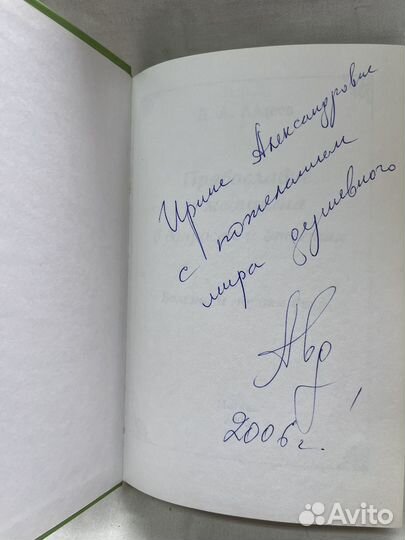 Ирине Александровне
с пожеланием
мира душевного
Авр
2006 г.
Avito